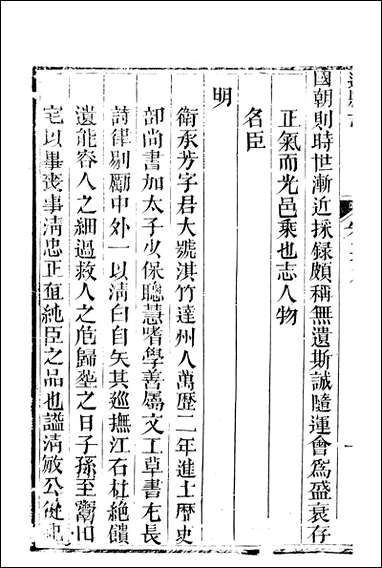 國朝則時世漸近採録頗稱無遺斯誠隨運會為盛衰存
正氣而光邑乘也志人物
名臣
明
衛承芳字君大號淇竹達州人萬歷二年進士歷吏
部尚書加太子少保聰慧嗜學善屬文工草書尤長
詩律剔勵中外一以清白自矢其巡撫江右杜絶饋
遺能容人之細過救人之危歸塟之日子孫至鬻旧
宅以畢喪事清忠正直純臣之品也謚清敏公從祀